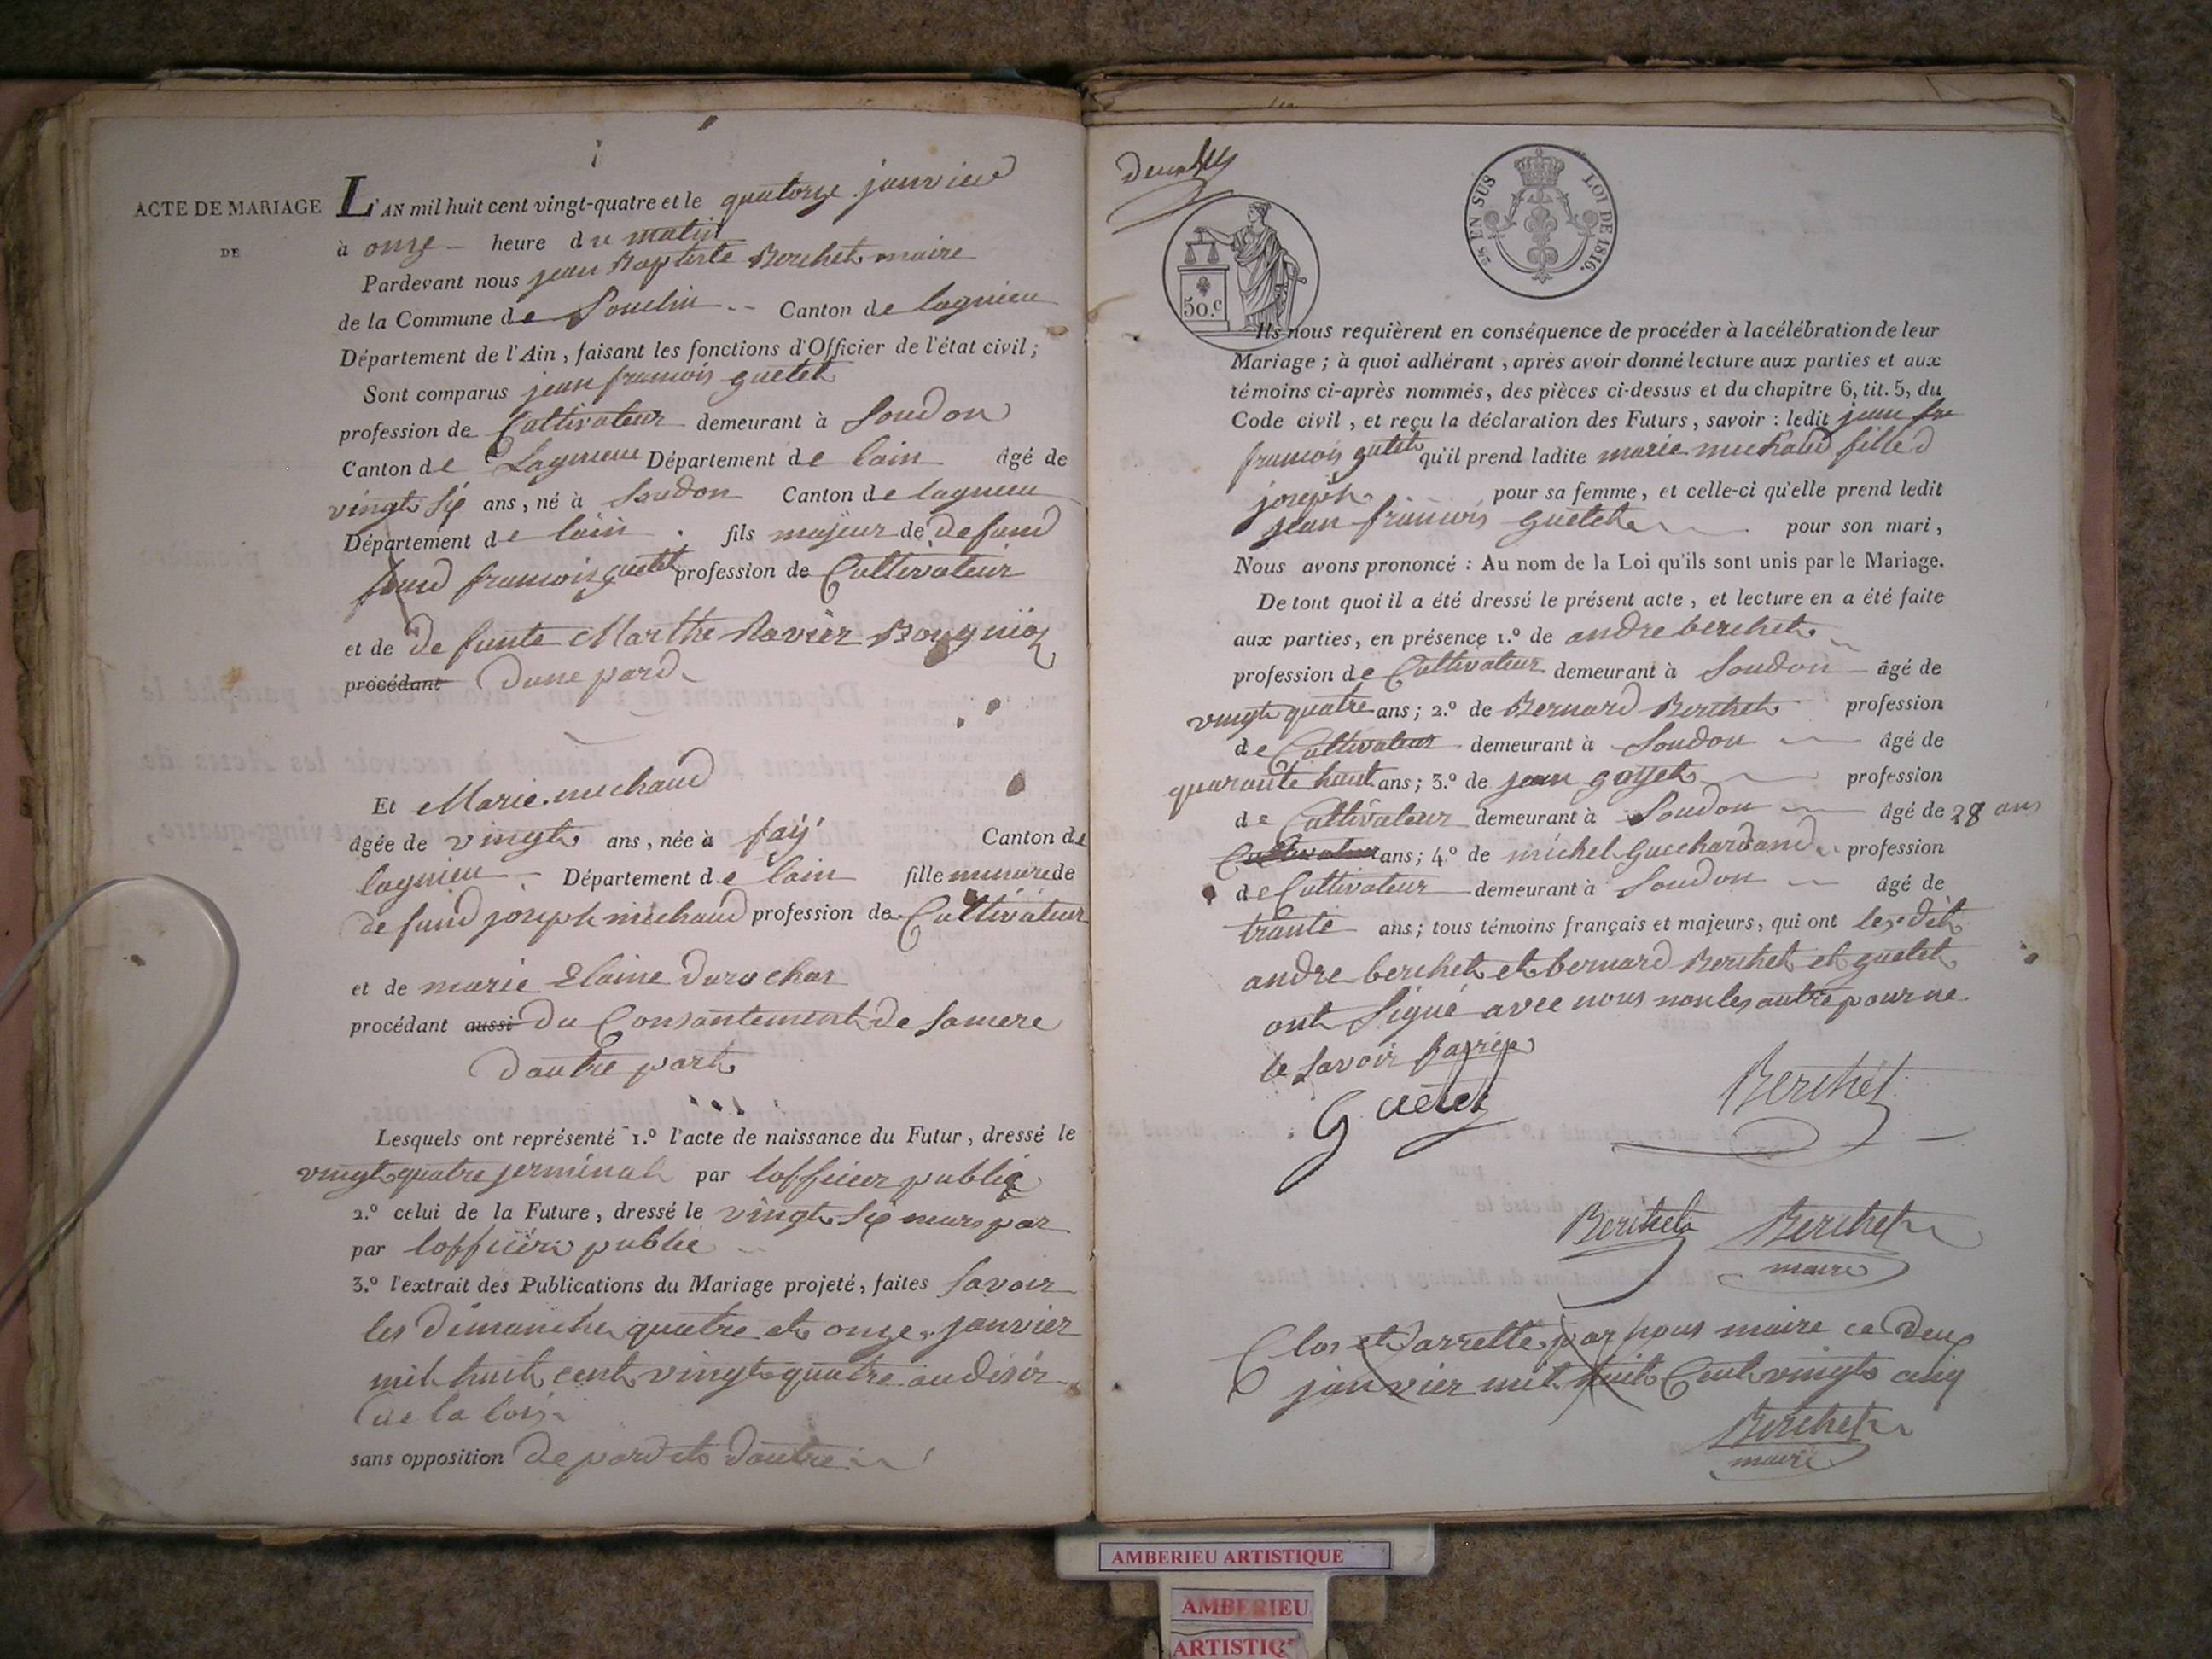 ACTE DE MARIAGE
DE
L'AN mil huit cent vingt-quatre et le quatorze janvier
à onze heure du matin
Pardevant nous jean Baptiste Berchet maire
de la Commune de Souclin Canton de lagnieu
Département de l'Ain, faisant les fonctions d'Officier de l'état civil;
Sont comparus jean francois guetet
profession de Cultivateur demeurant à Soudon
Canton de Lagnieue Département de lain âgé de
vingt six ans, né à Soudon Canton de lagnieu
Département de lain fils majeur de defund
fund francois guetet profession de Cultivateur
et de de funte Marthe Ravier
procédant Dune pard
Et Marie michaud
âgée de vingt ans, née à faÿ Canton de
lagnieu Département de lain fille minure de
de fund joseph michaud profession de Cultivateur
et de marie Elaine Durochar
procédant aussi Du Consantement de samere
Dautre part
Lesquels ont représenté 1.º l'acte de naissance du Futur, dressé le
vingt quatre jerminal par lofficier public
2.º celui de la Future, dressé le vingt six mars par
par lofficier public
3.º l'extrait des Publications du Mariage projeté, faites Savoir
les dimanche quatre et onze janvier
mil huit cent vingt quatre au desir
de la loi
sans opposition de pard et dautre
2es EN SUS LOI DE 1816.
50.c
Ils nous requièrent en conséquence de procéder à la célébration de leur
Mariage; à quoi adhérant, après avoir donné lecture aux parties et aux
témoins ci-après nommés, des pièces ci-dessus et du chapitre 6, tit. 5, du
Code civil, et reçu la déclaration des Futurs, savoir: ledit jean fra
francois gutet qu'il prend ladite marie michaud fille d
joseph pour sa femme, et celle-ci qu'elle prend ledit
jean francois guetet pour son mari,
Nous avons prononcé: Au nom de la Loi qu'ils sont unis par le Mariage.
De tout quoi il a été dressé le présent acte, et lecture en a été faite
aux parties, en présence 1.º de andre berchet
profession de Cultivateur demeurant à Soudon âgé de
vingt quatre ans; 2.º de Bernard Berchet profession
de Cultivateur demeurant à Soudon âgé de
quarante huit ans; 3.º de jean goyet profession
de Cultivateur demeurant à Soudon âgé de 28 ans
Cultivateur ans; 4.º de michel profession
de Cultivateur demeurant à Soudon âgé de
trante ans; tous témoins français et majeurs, qui ont les dit
andre berchet et bernard Berchet et guetet
ont Signé avec nous non les autre pour ne
le savoir
Guetet
Berchet
Berchet Berchet
maire
Clos et arrette par nous maire ce deux
janvier mil huit Cent vingt cinq
Berchet
maire
AMBERIEU ARTISTIQUE
AMBERIEU
ARTISTIQ